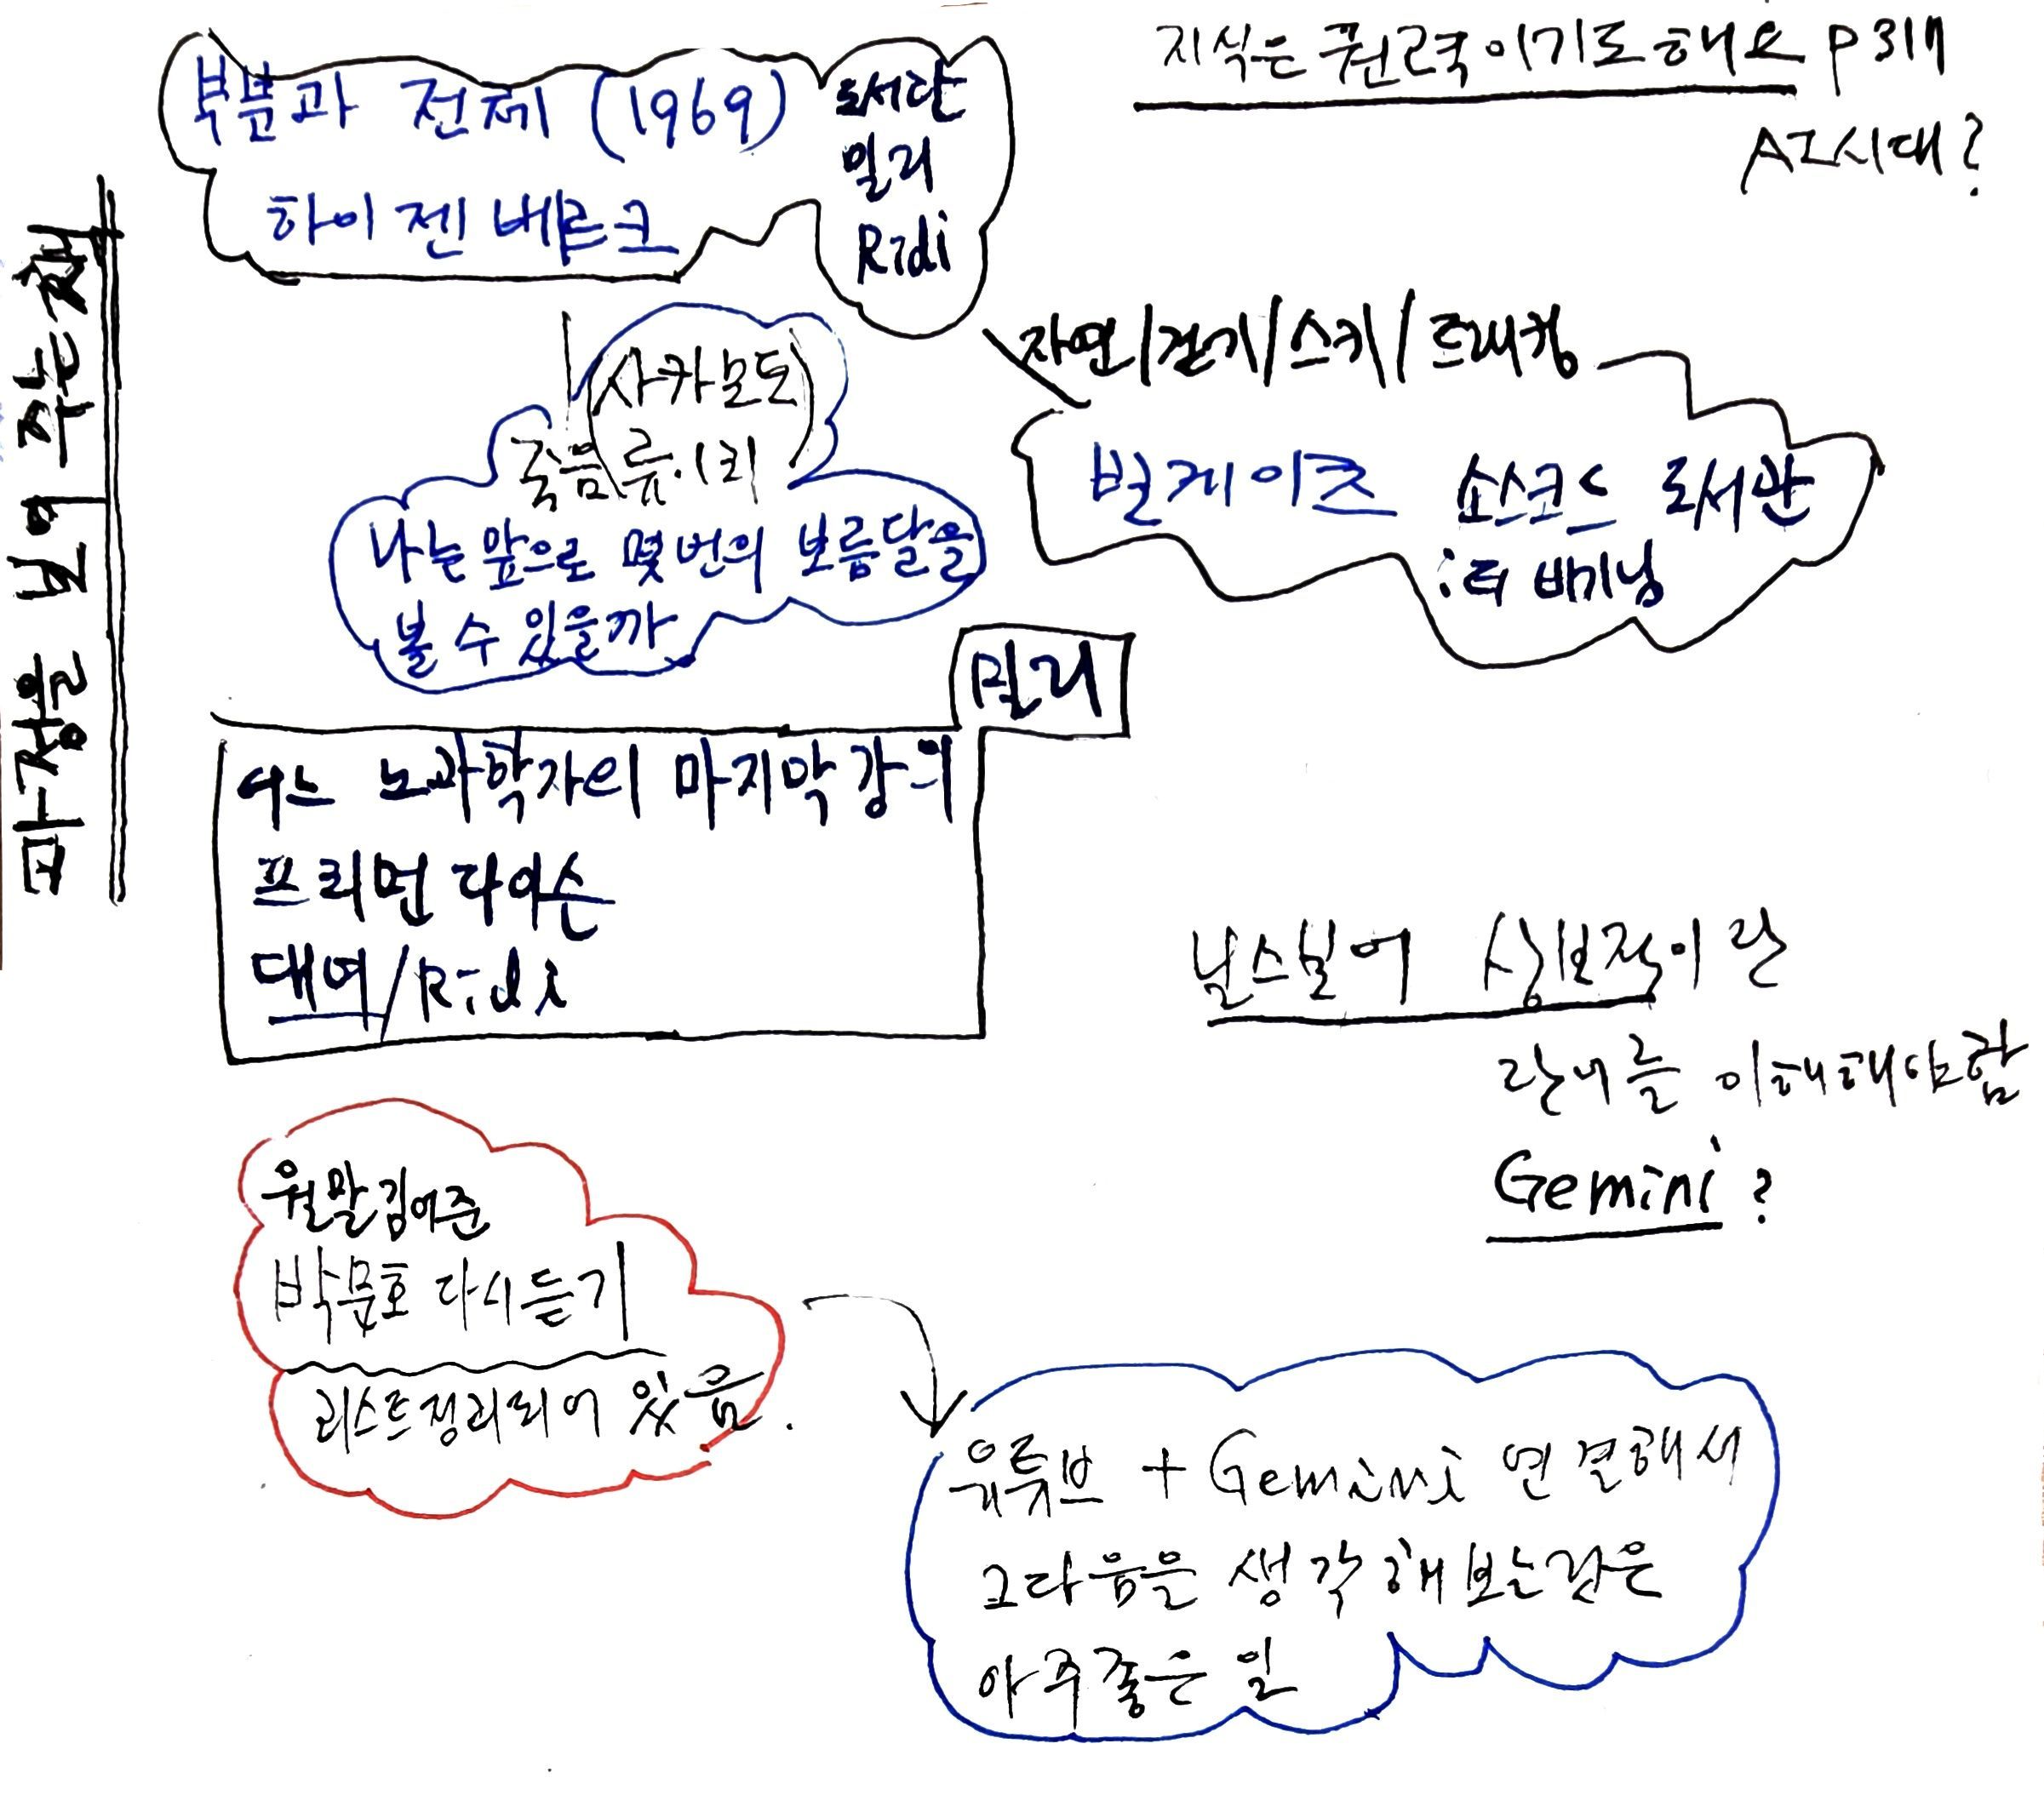 부분과 전체 (1969)
하이젠베르크
도서관
밀리
Ridi
지식은 권력이기도 해요 p317
AI시대?
자연/걷기/스키/트래킹
빌게이츠 소스코드 도서관
:더 비기닝
사카모토
죽음 류이치
나는 앞으로 몇 번의 보름달을
볼 수 있을까
밀리
어느 노과학자의 마지막 강의
프리먼 다이슨
대여/Ridi
닐스보어 상보적이란
란 너를 이해해야함
Gemini ?
월말김어준
박문호 다시듣기
리스트정리되어 있음.
유튜브 + Gemini 연결해서
그다음을 생각해보는것은
아주좋은 일